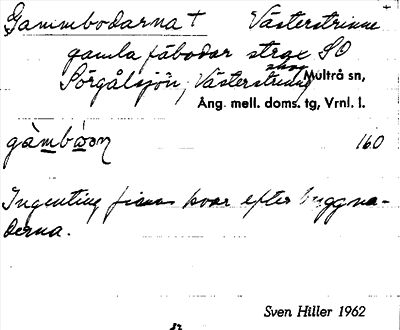 Gammbodarna † Västerstrinne
gamla fäbodar strax SO
Sörgålsjön, Västerstrinne skog Multrå sn,
Ång. mell. doms. tg, Vrnl. l.
160
Ingenting finns kvar efter byggna-
derna.
Sven Hiller 1962